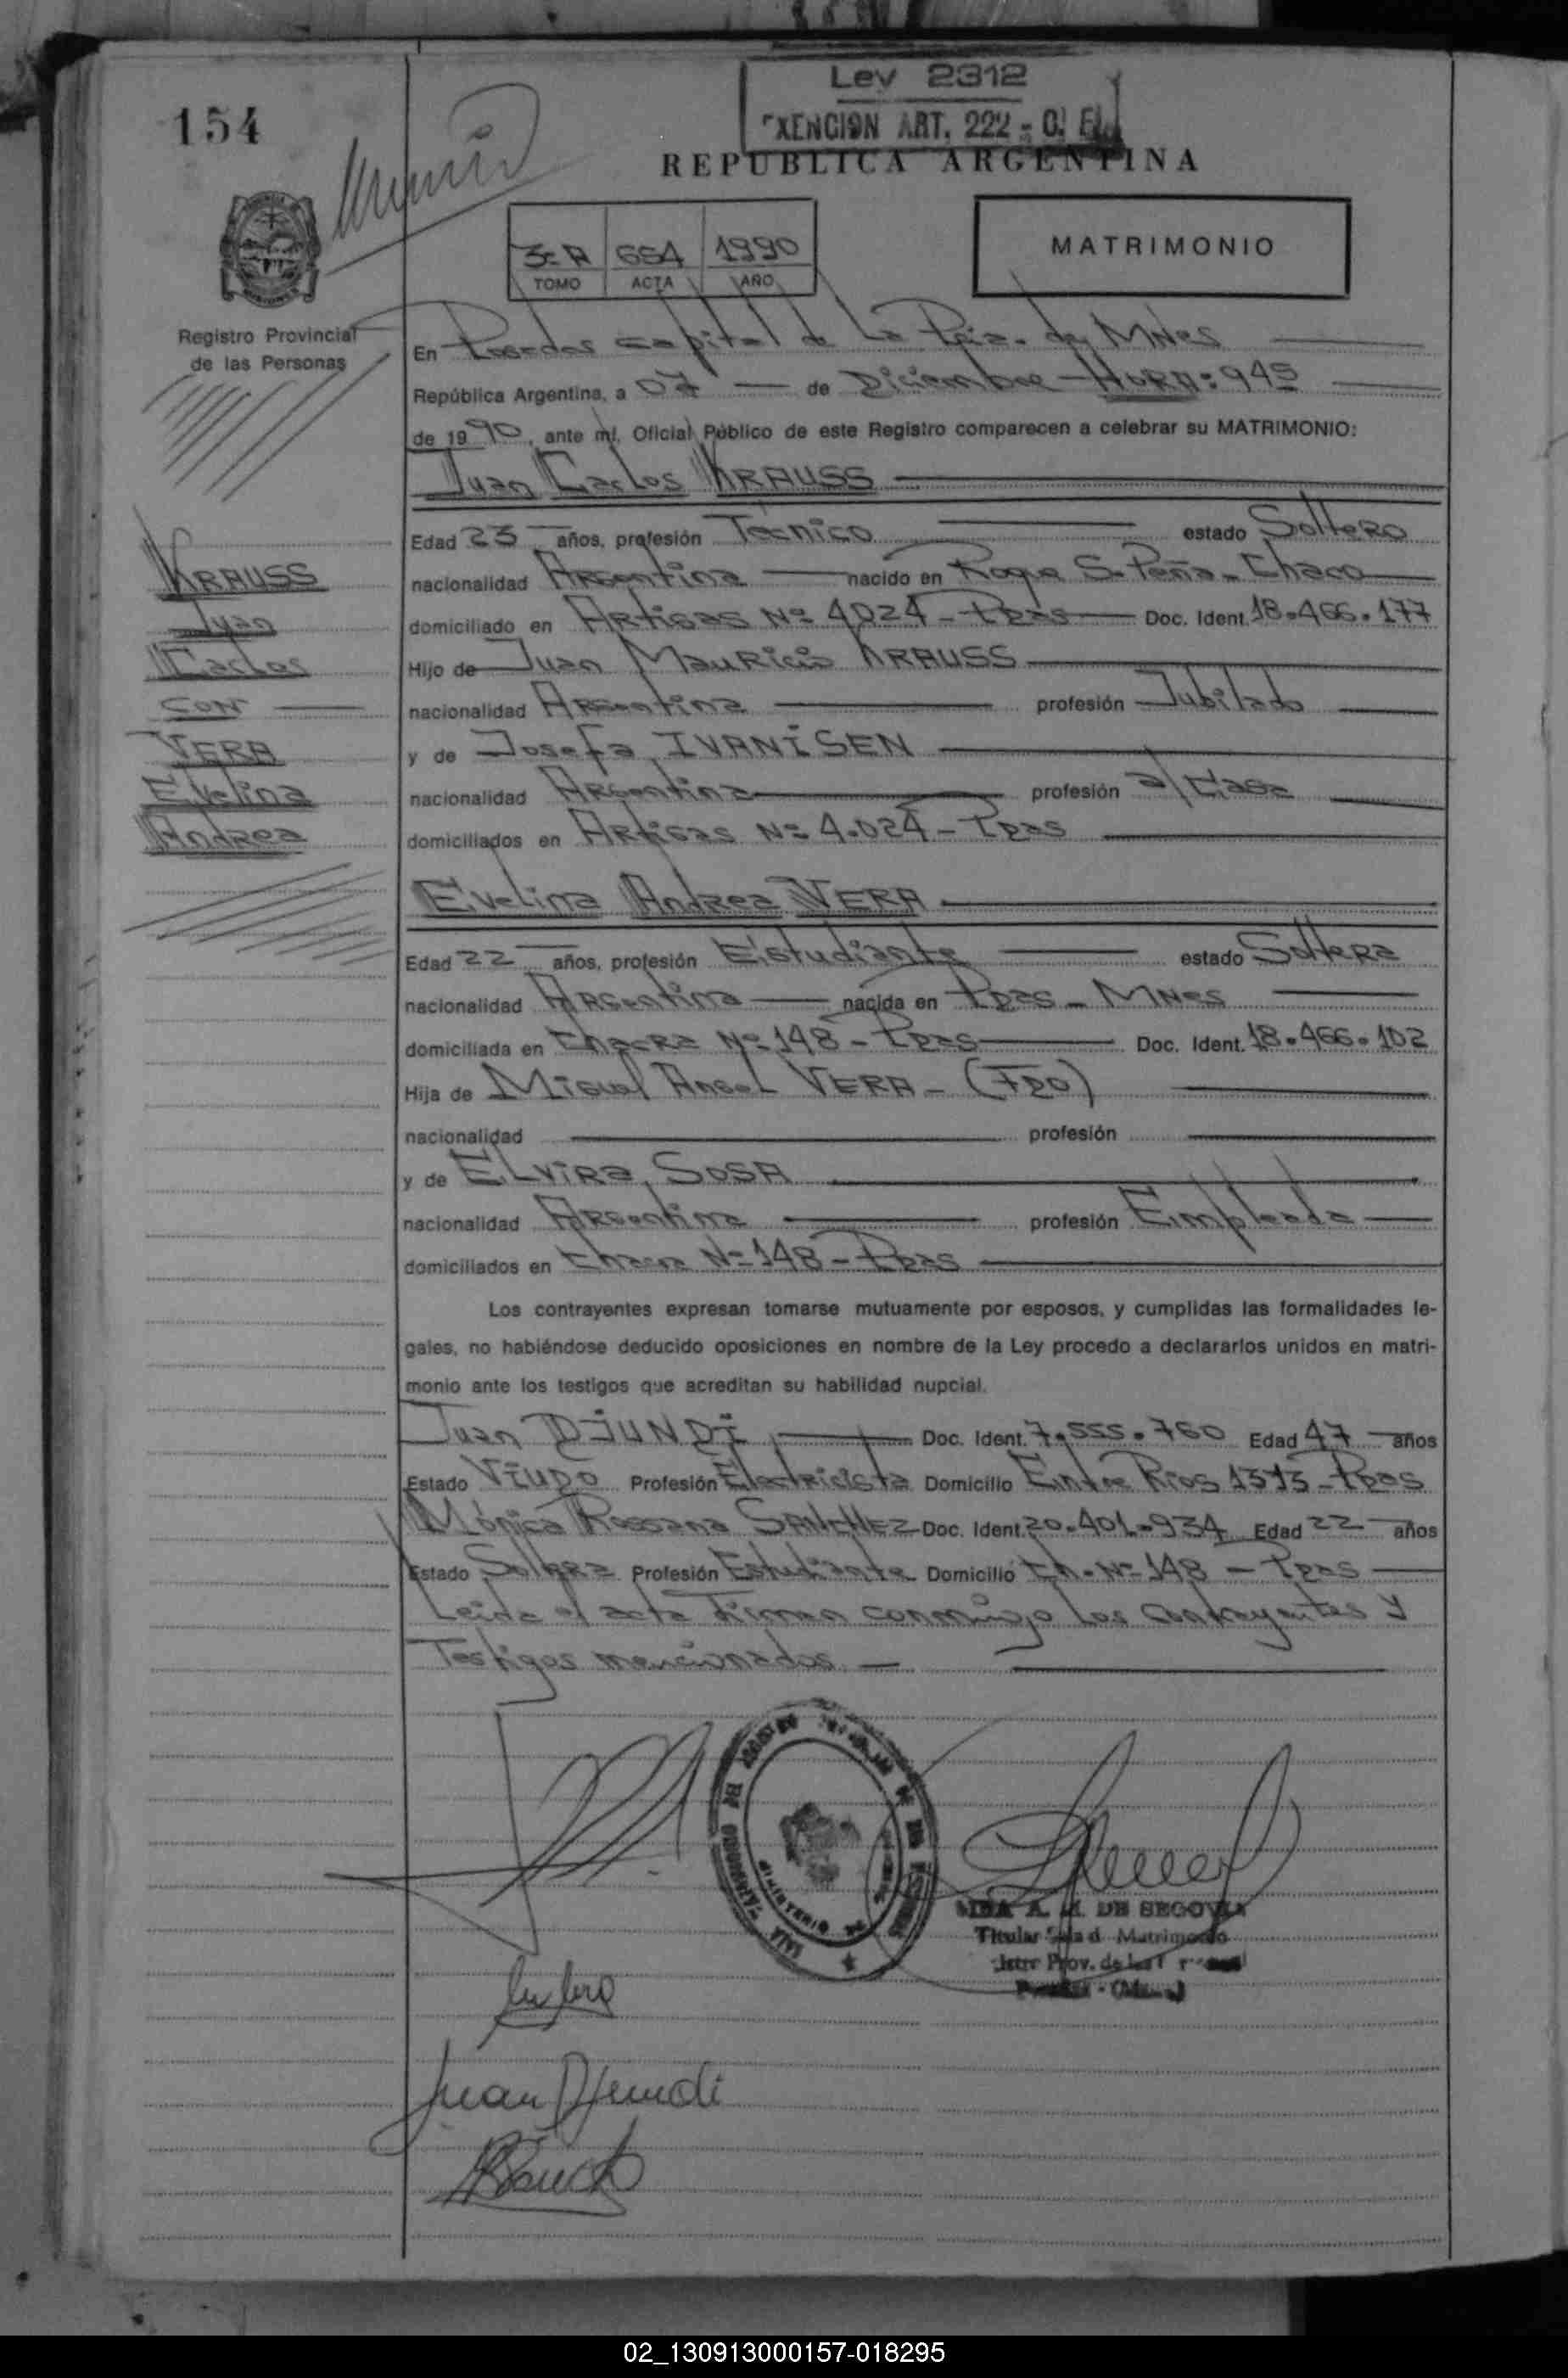 Ley 2312
EXENCION ART. 222 - C. F.
154
REPUBLICA ARGENTINA
3º A 654 1990
TOMO ACTA AÑO
MATRIMONIO
Registro Provincial
de las Personas
En Posadas capital de La Pcia. de Mnes
República Argentina, a 07 de Diciembre - HORA: 945
de 1990, ante mí, Oficial Público de este Registro comparecen a celebrar su MATRIMONIO:
Juan Carlos KRAUSS
Edad 23 años, profesión Técnico estado Soltero
KRAUSS
nacionalidad Argentina nacido en Roque S. Peña - Chaco
Juan
domiciliado en Artigas Nº 4024 - Ppas Doc. Ident. 18.466.177
Carlos
Hijo de Juan Mauricio KRAUSS
CON
nacionalidad Argentina profesión Jubilado
VERA
y de Josefa IVANISEN
Evelina
nacionalidad Argentina profesión a/Casa
Andrea
domiciliados en Artigas Nº 4.024 - Ppas
Evelina Andrea VERA
Edad 22 años, profesión Estudiante estado Soltera
nacionalidad Argentina nacida en Ppas - Mnes
domiciliada en Chacra Nº 148 - Ppas Doc. Ident. 18.466.102
Hija de Miguel Angel VERA - (Fdo)
nacionalidad profesión
y de Elvira SOSA
nacionalidad Argentina profesión Empleada
domiciliados en Chacra Nº 148 - Ppas
Los contrayentes expresan tomarse mutuamente por esposos, y cumplidas las formalidades le-
gales, no habiéndose deducido oposiciones en nombre de la Ley procedo a declararlos unidos en matri-
monio ante los testigos que acreditan su habilidad nupcial.
Juan DJUNDI Doc. Ident. 7.555.760 Edad 47 años
Estado Viudo Profesión Electricista Domicilio Entre Rios 1373 - Ppas
Mónica Rossana SANCHEZ Doc. Ident. 20.401.934 Edad 22 años
Estado Soltera Profesión Estudiante Domicilio Ch. Nº 148 - Ppas
Leida el acta firman conmigo los contrayentes y
Testigos mencionados
A. M. DE SEGOVIA
Titular Matrimonio
Prov. de las
Juan Djundi
02_130913000157-018295